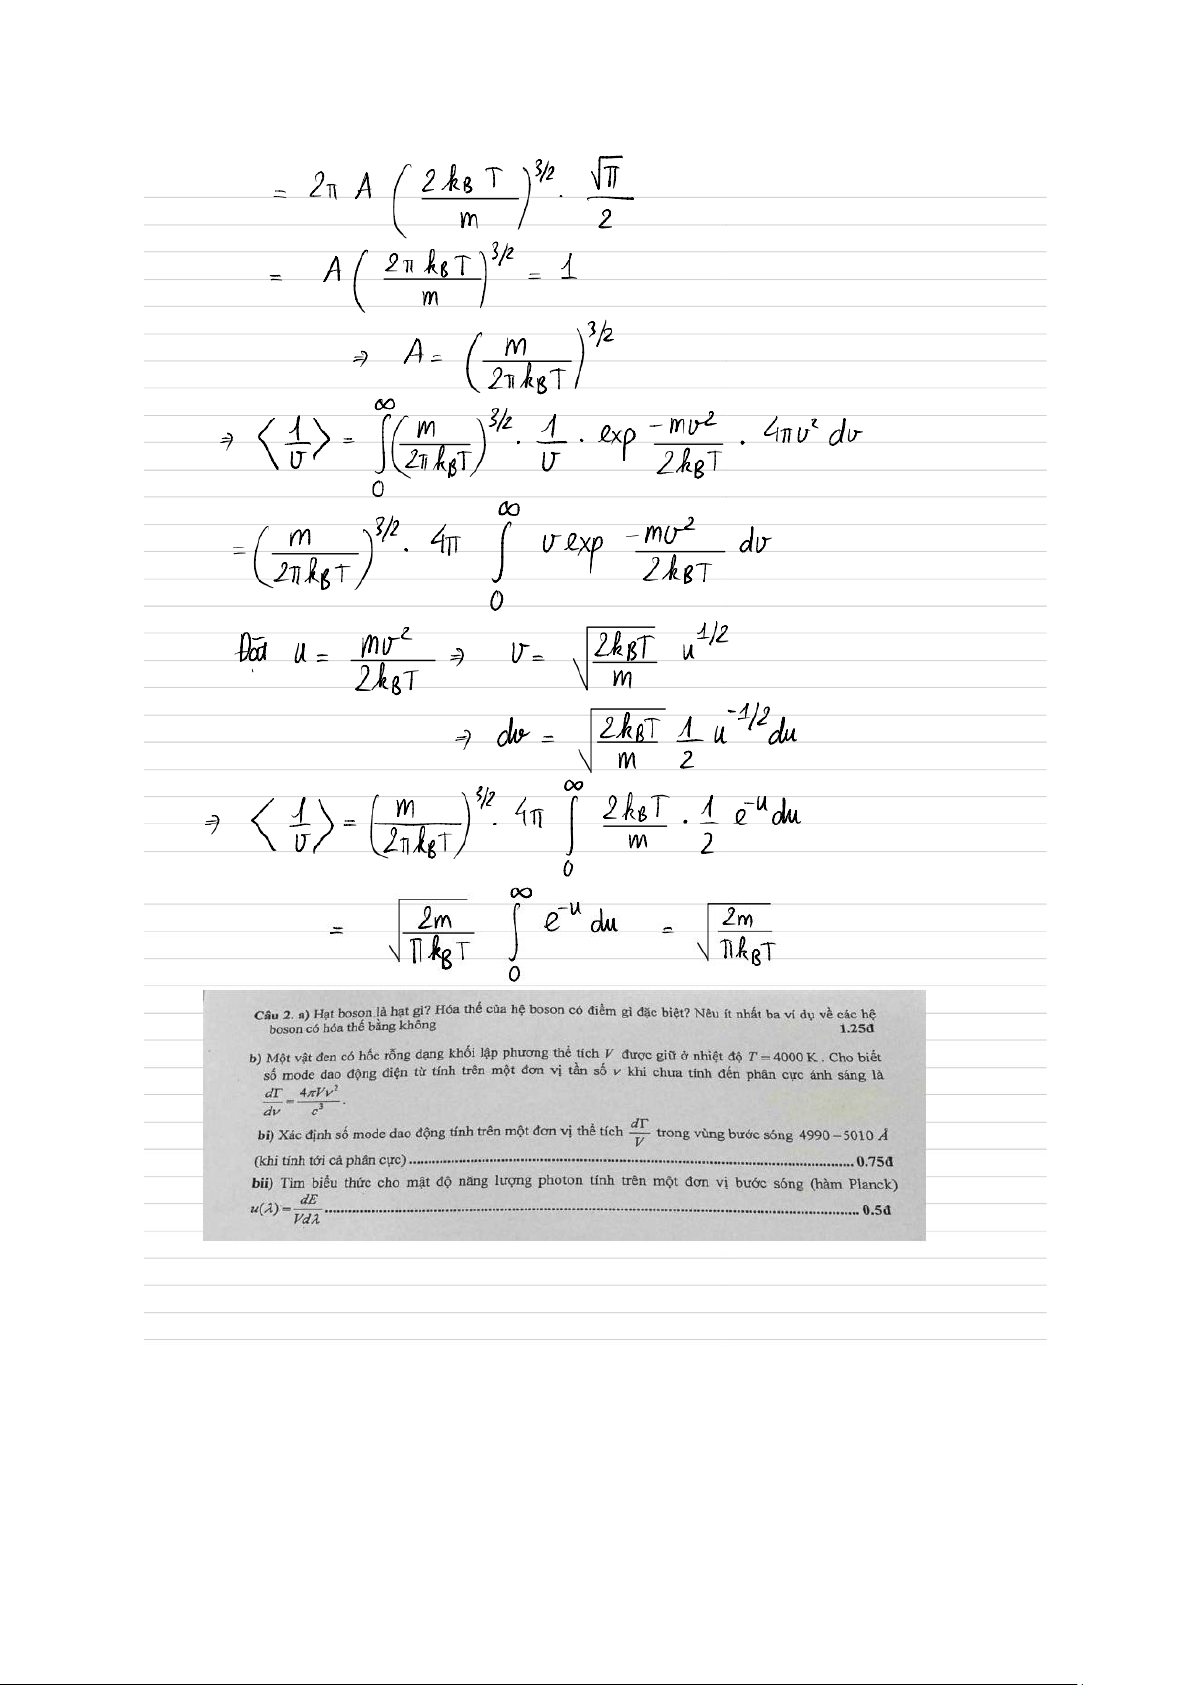 = 2π A ( 2k_B T / m )^{3/2} . √π / 2
= A ( 2π k_B T / m )^{3/2} = 1
⇒ A = ( m / 2π k_B T )^{3/2}
⇒ ⟨ 1/v ⟩ = ∫_0^∞ ( m / 2π k_B T )^{3/2} . 1/v . exp -mv² / 2k_B T . 4πv² dv
= ( m / 2π k_B T )^{3/2} . 4π ∫_0^∞ v exp -mv² / 2k_B T dv
Đặt u = mv² / 2k_B T ⇒ v = √(2k_B T / m) u^{1/2}
⇒ dv = √(2k_B T / m) 1/2 u^{-1/2} du
⇒ ⟨ 1/v ⟩ = ( m / 2π k_B T )^{3/2} . 4π ∫_0^∞ 2k_B T / m . 1/2 e^{-u} du
= √(2m / π k_B T) ∫_0^∞ e^{-u} du = √(2m / π k_B T)
Câu 2. a) Hạt boson là hạt gì? Hóa thế của hệ boson có điểm gì đặc biệt? Nêu ít nhất ba ví dụ về các hệ
boson có hóa thế bằng không 1.25đ
b) Một vật đen có hốc rỗng dạng khối lập phương thể tích V được giữ ở nhiệt độ T = 4000 K . Cho biết
số mode dao động điện từ tính trên một đơn vị tần số ν khi chưa tính đến phân cực ánh sáng là
dΓ/dν = 4πVν²/c³ .
bi) Xác định số mode dao động tính trên một đơn vị thể tích dΓ/V trong vùng bước sóng 4990 – 5010 Å
(khi tính tới cả phân cực) ........ 0.75đ
bii) Tìm biểu thức cho mật độ năng lượng photon tính trên một đơn vị bước sóng (hàm Planck)
u(λ) = dE/Vdλ ........ 0.5đ